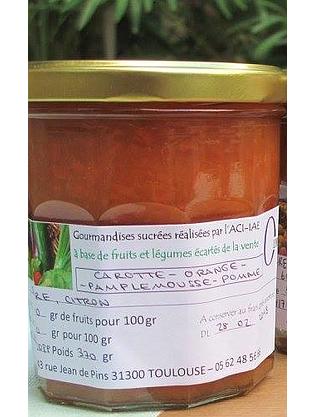 Gourmandises sucrées réalisées par l'ACI-IAE
à base de fruits et légumes écartés de la vente
CAROTTE - ORANGE -
- PAMPLEMOUSSE - POMME
RE, CITRON
gr de fruits pour 100 gr
gr pour 100 gr
Poids 330 gr
A conserver au frais
DL 28 02
rue Jean de Pins 31300 TOULOUSE - 05 62 48 56